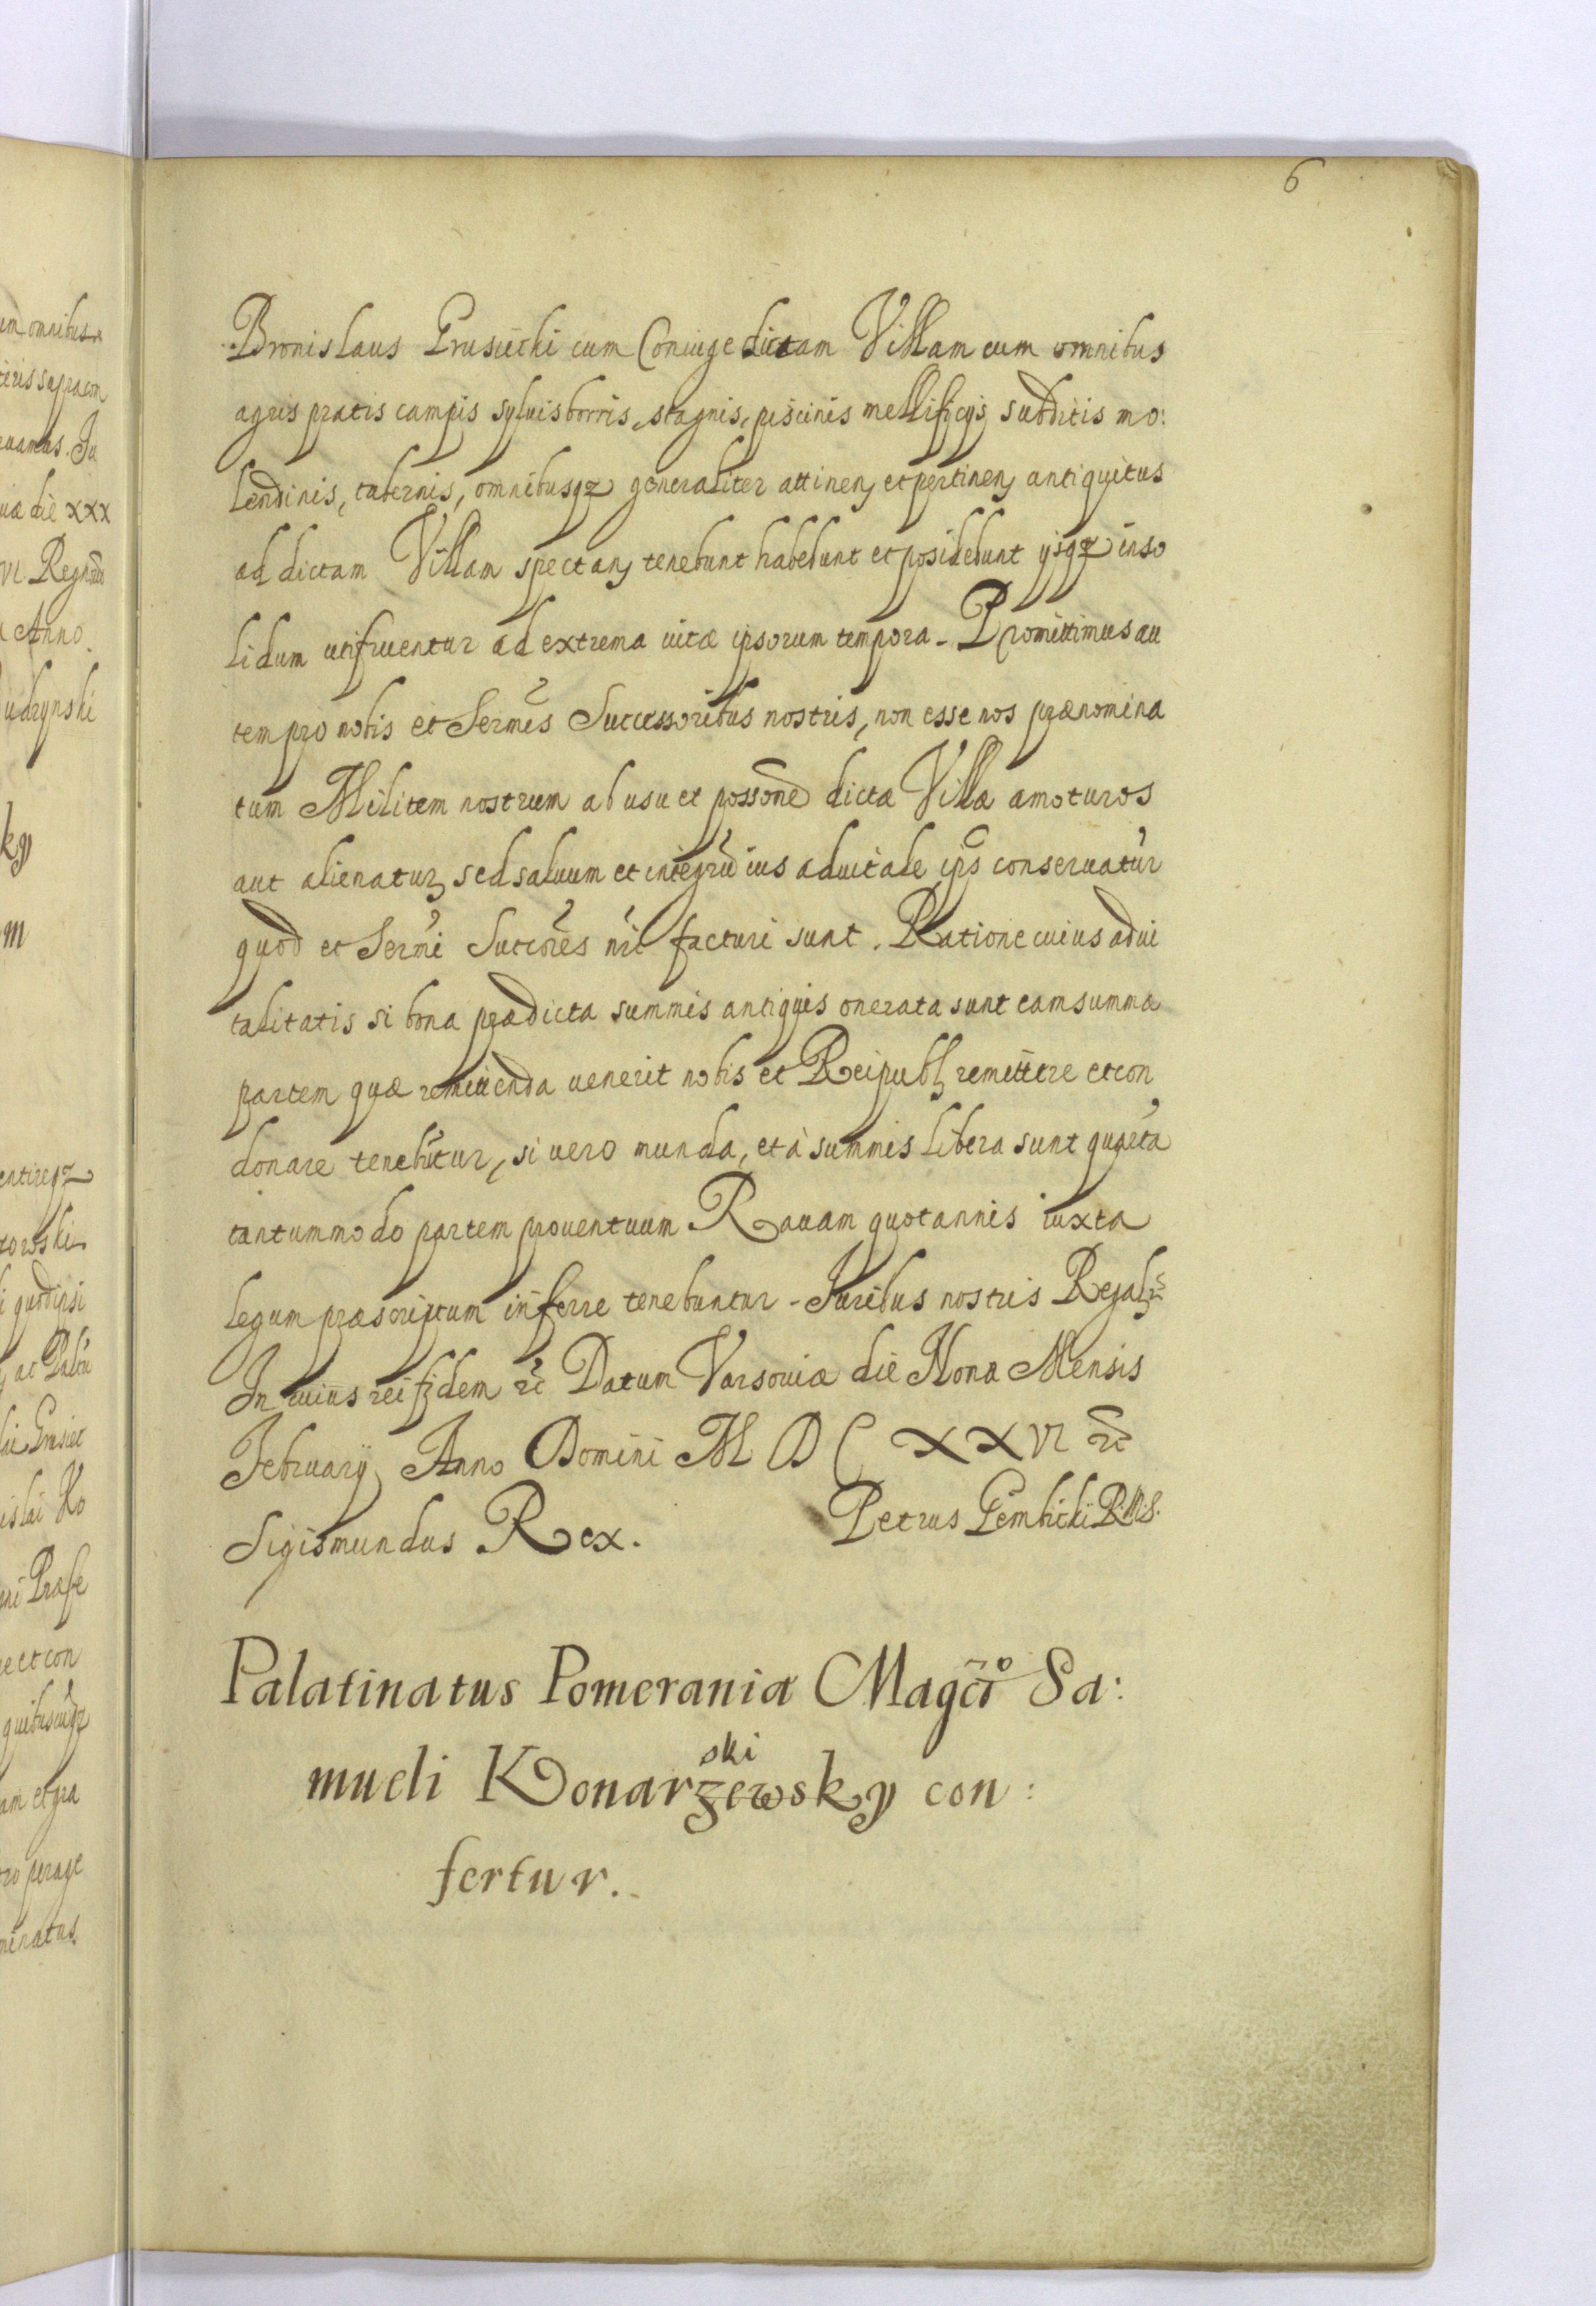 6
Bronislaus Grusiecki cum Coniuge dictam Villam cum omnibus
agris pratis campis syluis borris, stagnis, piscinis mellificijs subditis mo:
lendinis, tabernis, omnibusqz generaliter attinen, et pertinen, antiquitus
ad dictam Villam spectan, tenebunt habebunt et posidebunt ijsqz inso
lidum utifruentur ad extrema uitæ ipsorum tempora - Promittimus au
tem pro nobis et Sermīs Successoribus nostris, non esse nos prænomina
tum Militem nostrum ab usu et possone dictæ Villæ amoturos
aut alienatur, sed saluum et integrū ius aduitale ips conseruatur
quod et Sermi Succores nri facturi sunt. Ratione cuius adui
talitatis si bona prædicta summis antiquis onerata sunt eam summæ
partem quæ remittenda uenerit nobis et Reipubl, remittere et con
donare tenebūtur, si uero munda, et à summis libera sunt quarta
tantummodo partem prouentuum Rauam quotannis iuxta
legum præscriptum inferre tenebuntur - Juribus nostris Regal, rc
In cuius rei fidem rc Datum Varsouiæ die Nona Mensis
February Anno Domini M D C XXVI rc
Sigismundus Rex. Petrus Gembicki R.M.S.
Palatinatus Pomeraniæ Magco Sa:
ski
mueli Konarzewsky con:
fertur.
um omnibus
eris supracon
uamus. Ju
uæ die XXX
VI Regnorū
Anno
udzynski
ky
m
entireqz
rowski
i quod ipsi
ac Palatī
lai Grusiec
islai Ko
eni Præfe
e et con
quibuscūqz
am et gra
ro perage
minatus